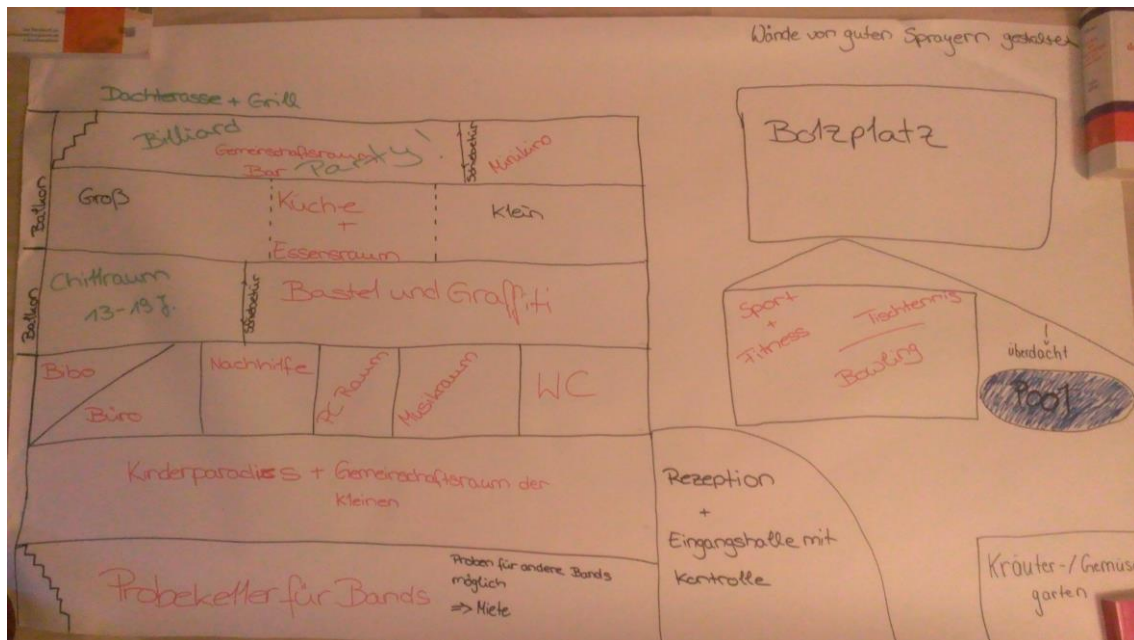 Wände von guten Sprayern gestalten
Dachterasse + Grill
Billiard
Gemeinschaftsraum
Bar Party!
Schiebetür
Minikino
Balkon
Groß
Küche
+
Essensraum
Klein
Balkon
Chillraum
13-19 J.
Schiebetür
Bastel und Graffiti
Bibo
Büro
Nachhilfe
PC Raum
Musikraum
WC
Kinderparadies + Gemeinschaftsraum der
Kleinen
Probekeller für Bands
Proben für andere Bands
möglich
=> Miete
Rezeption
+
Eingangshalle mit
Kontrolle
Bolzplatz
Sport
+
Fitness
Tischtennis
Bowling
überdacht
Pool
Kräuter-/Gemüse
garten